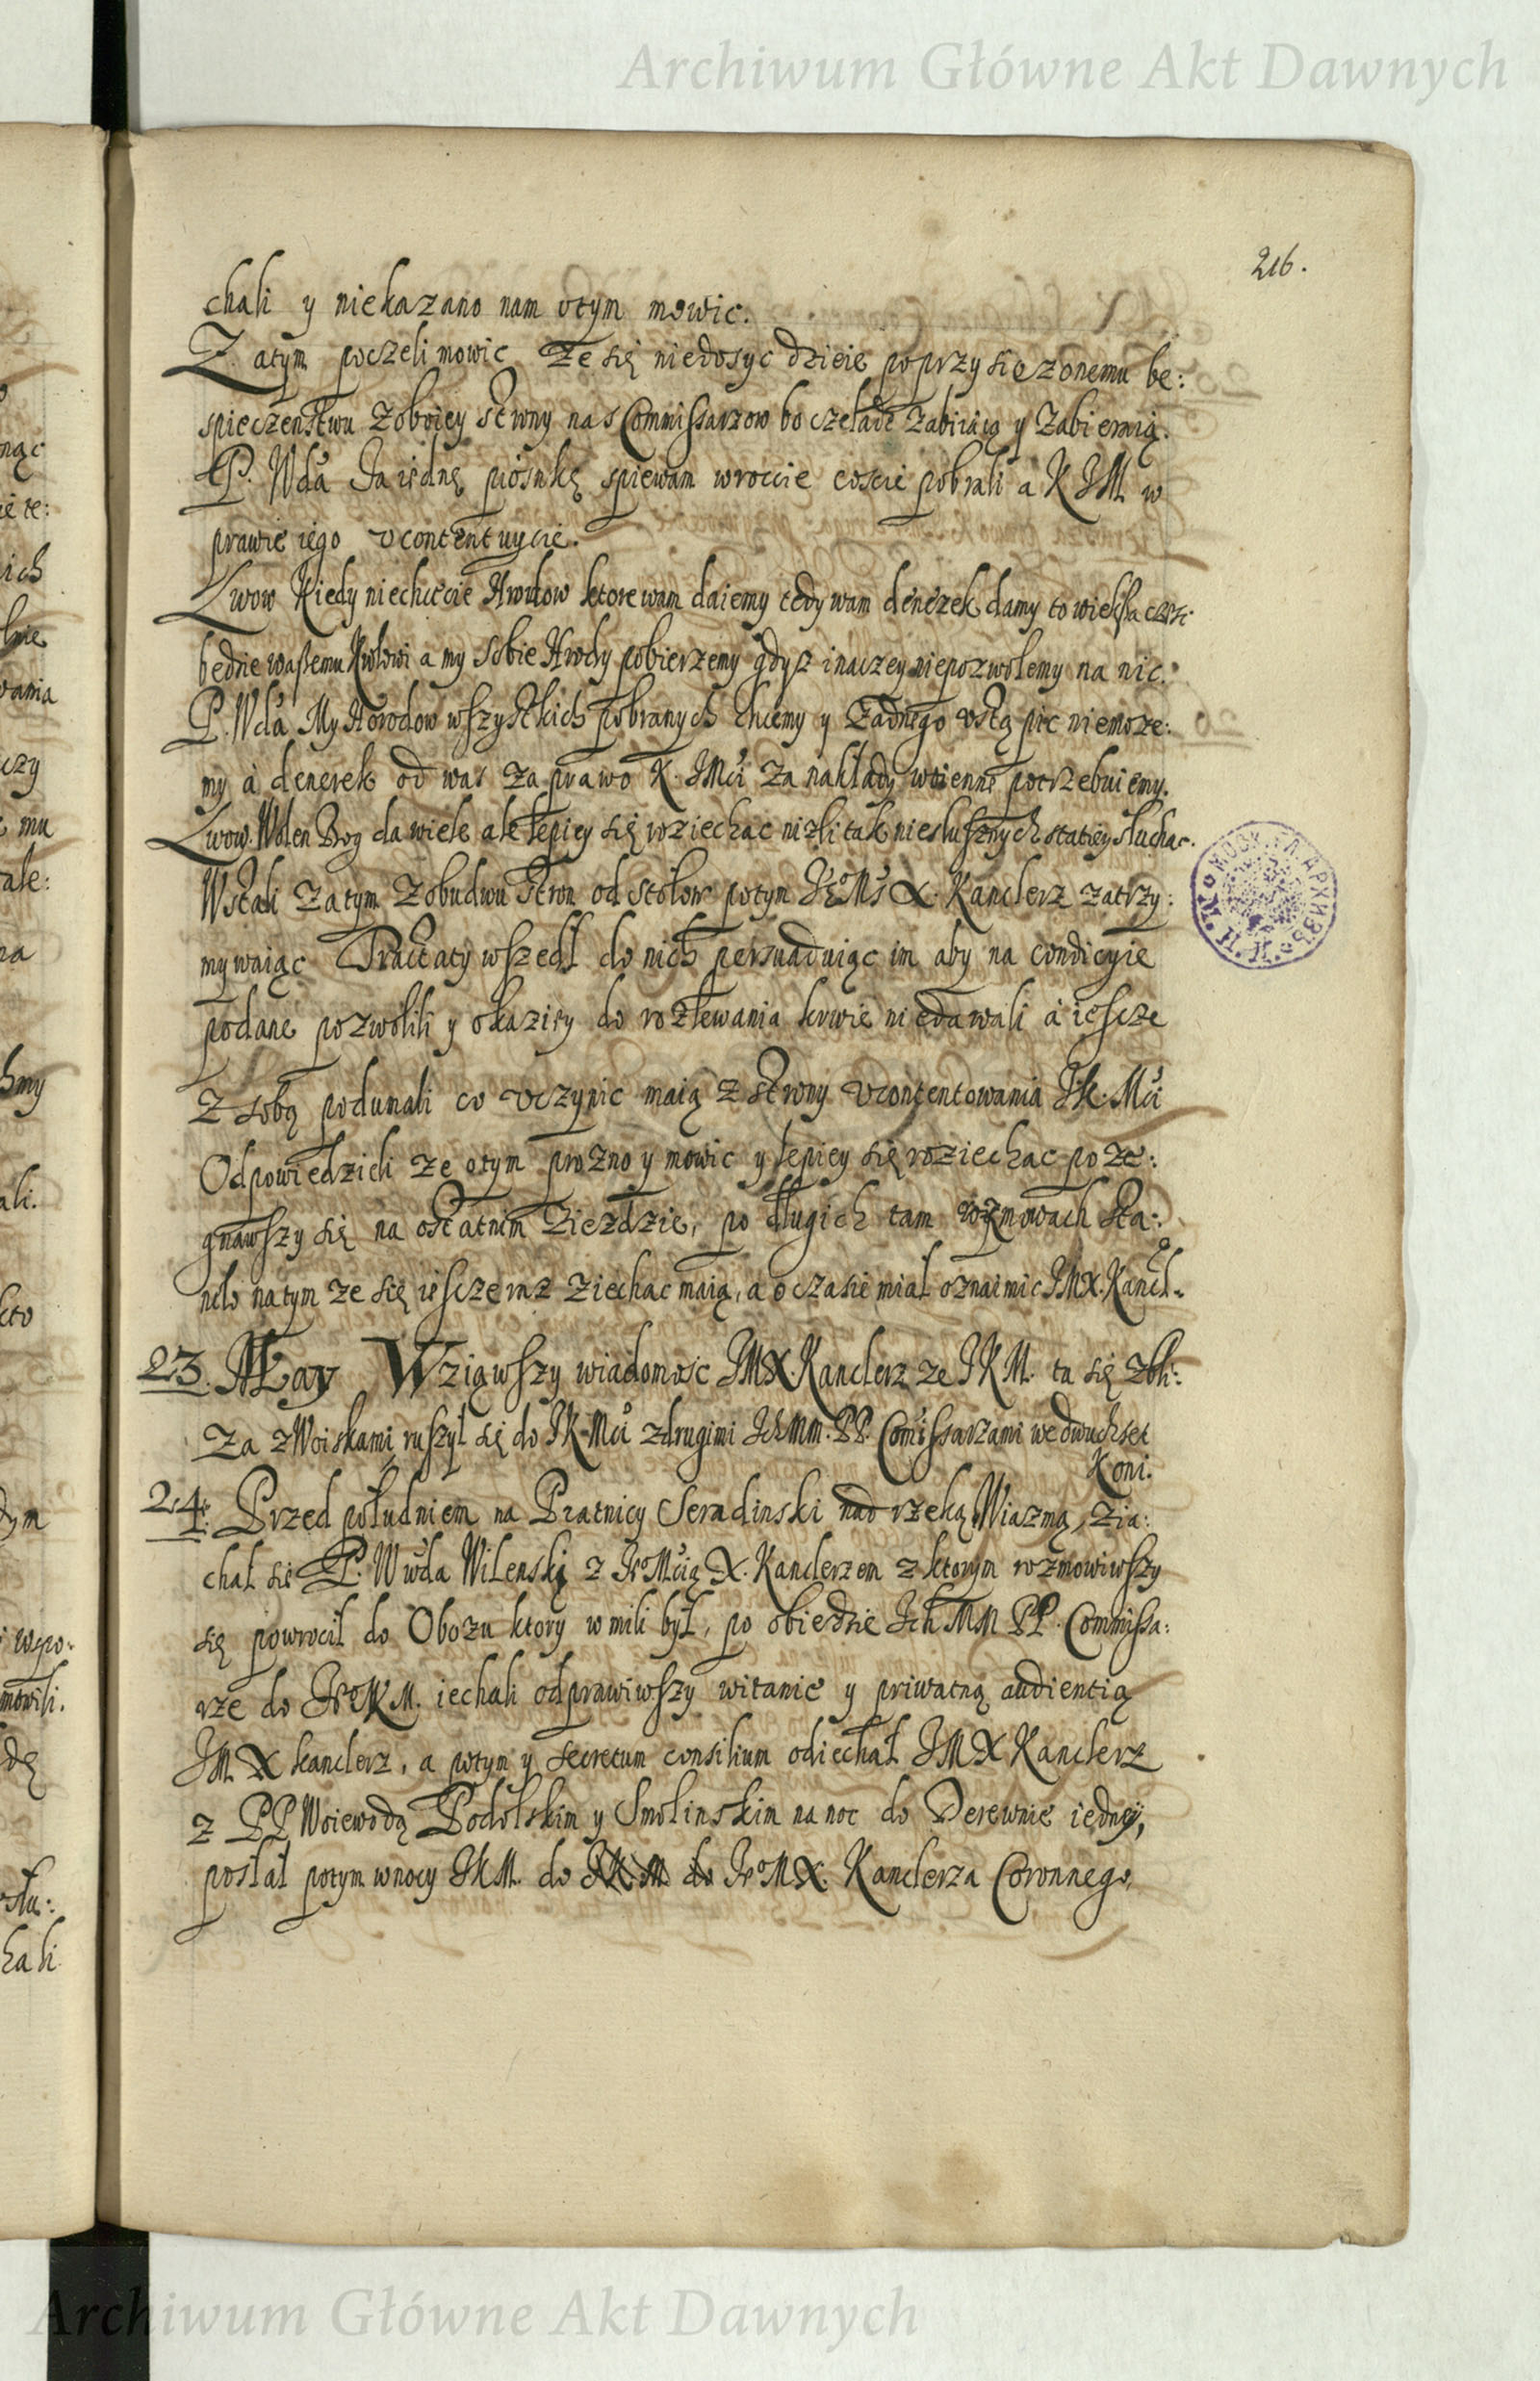 Archiwum Główne Akt Dawnych
216.
chali y niekazano nam otym mowic.
Zatym poczeli mowic że się niedosyc dzieie poprzysiezonemu be:
spieczenstwu zoboiey strony nas Commissarzow bo czeladz zabiiaią y zabieraią.
P. Wda Ja iednę piosnkę spiewam wroccie coscie pobrali a K JM. w
prawie iego vcontentuycie.
Lwow Kiedy niechcecie Hrodow ktore wam daiemy tedy wam denezek damy to wieksza czesc
bedzie waszemu Krolowi a my sobie Hrody pobierzemy gdyz inaczey niepozwolemy na nic.
P. Wda My Horodow wszystkich pobranych chcemy y Zadnego vstąpic niemoze:
my à denezek od was za prawo K. JMci za nakłady woienne potrzebuiemy.
Lwow. Wolen Bog da wiele ale lepiey się roziechac nizli tak niesłusznych statiey słuchac.
Wstali zatym zobudwu stron od stołow potym JeoMs X. Kanclerz zatrzy:
mywaiąc Tractaty wszedł do nich persuaduiąc im aby na condicyie
podane pozwolili y okaziey do rozlewania krwie niedawali à iescze
z sobą podumali co vczynic maią z strony vcontentowania JK. Mci
Odpowiedzieli ze otym prozno y mowic y lepiey się roziechac poże:
gnawszy się na ostatnim zieździe, po długich tam rozmowach sta:
nelo natym ze się iescze raz ziechac maią, a o czasie miał oznaimic JMX. Kancl.
23. May Wziąwszy wiadomosc JMX. Kanclerz ze JKM. tu się zbli:
za z Woiskami ruszył się do JK. Mci zdrugimi IchMm. PP. Comissarzami we dwuchset
Koni.
24. Przed południem na Pratnicy Seradinski nad rzeką Wiazmą, zia:
chał się P. Wwda Wilenski z JeoMcią X. Kanclerzem z ktorym rozmowiwszy
się powrocił do Obozu ktory w mili był, po obiedzie Ich MM PP. Commissa:
rze do JeoKM. iechali odprawiwszy witanie y priwatną audientią
JM. X kanclerz, a potym y secretum consilium odiechał JMX Kanclerz
z PP Woiewodą Podolskim y Smolinskim na noc do Derewnie iedney,
posłał potym wnocy JKM. do JeoMX. Kanclerza Coronnego,
Archiwum Główne Akt Dawnych